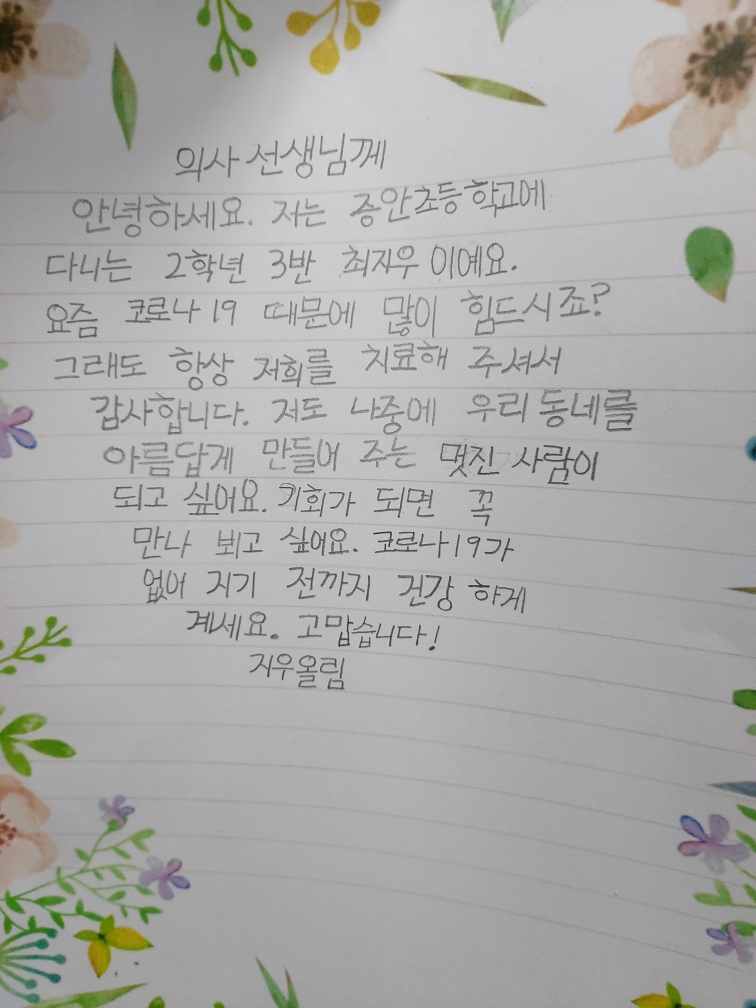 의사 선생님께
안녕하세요. 저는 증안초등학교에
다니는 2학년 3반 최지우 이예요.
요즘 코로나 19 때문에 많이 힘드시죠?
그래도 항상 저희를 치료해 주셔서
감사합니다. 저도 나중에 우리 동네를
아름답게 만들어 주는 멋진 사람이
되고 싶어요. 기회가 되면 꼭
만나 뵈고 싶어요. 코로나19가
없어 지기 전까지 건강 하게
계세요. 고맙습니다!
지우올림